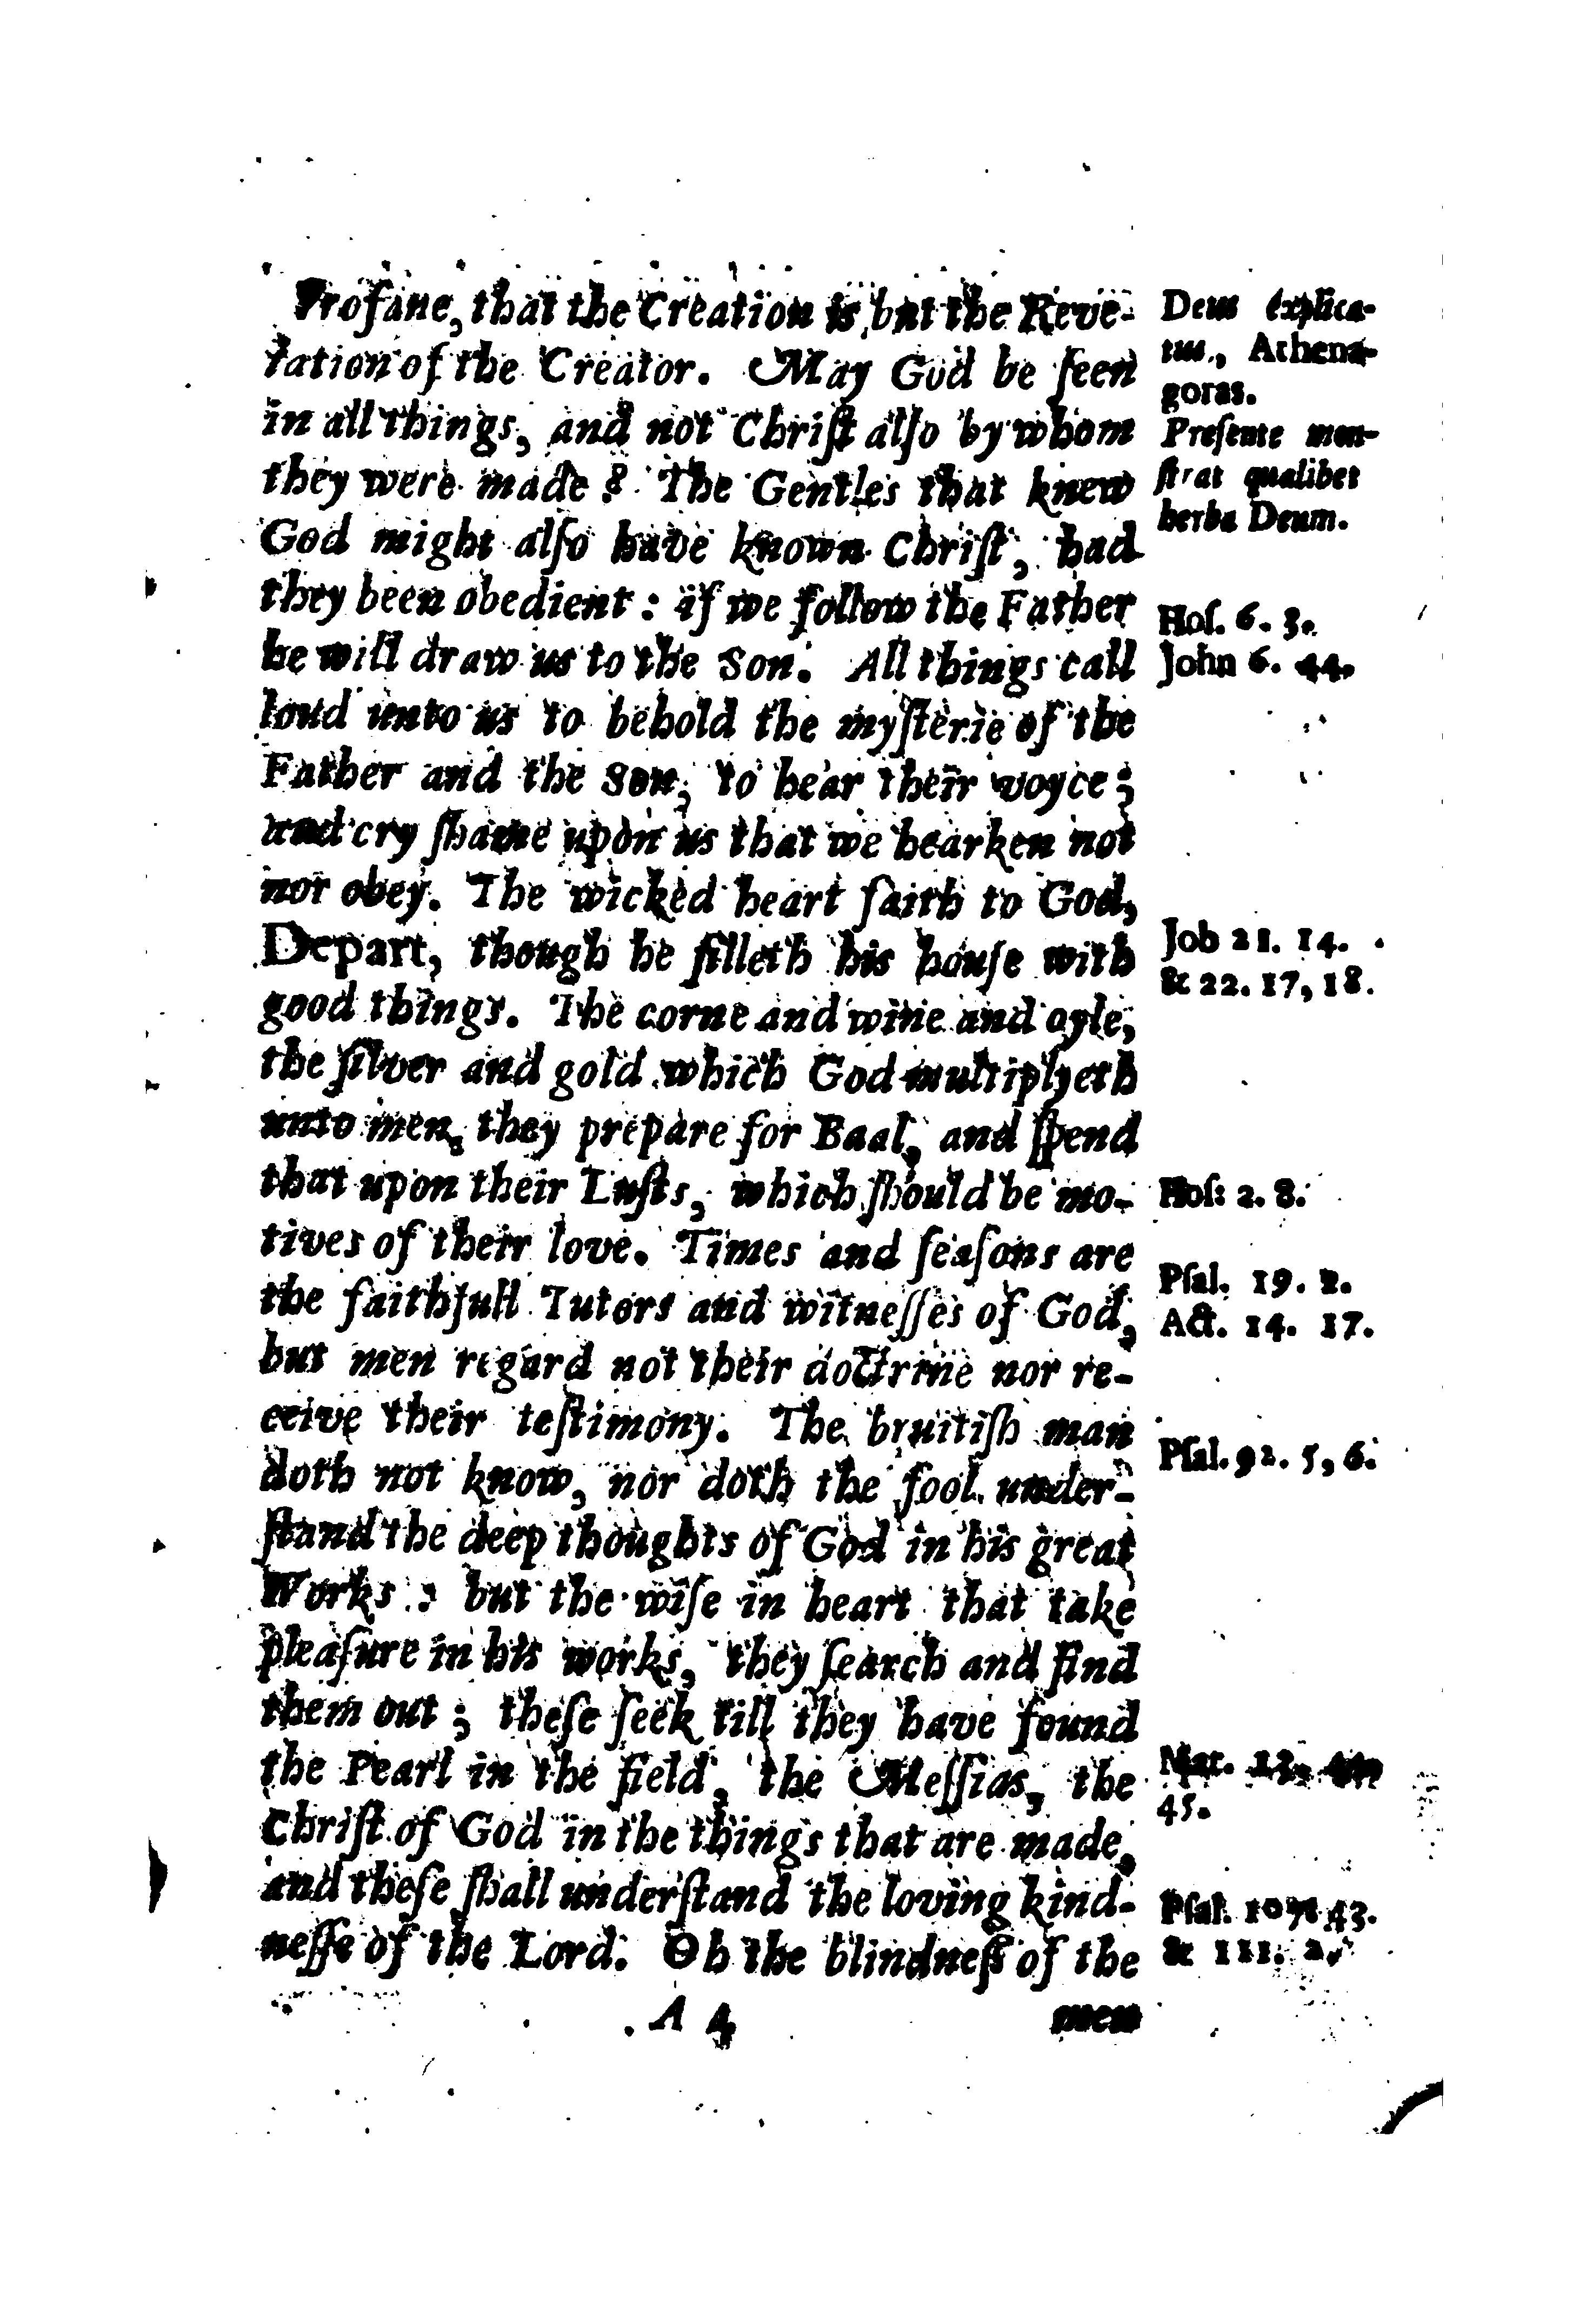 Profane, that the Creation is but the Reve-
lation of the Creator. May God be ſeen
in all things, and not Chriſt alſo by whom
they were made? The Gentles that knew
God might alſo have known Chriſt, had
they been obedient: if we follow the Father
he will draw us to the Son. All things call
loud unto us to behold the myſterie of the
Father and the Son, to hear their voyce;
and cry ſhame upon us that we hearken not
nor obey. The wicked heart ſaith to God,
Depart, though he filleth his houſe with
good things. The corne and wine and oyle,
the ſilver and gold which God multiplyeth
unto men, they prepare for Baal, and ſpend
that upon their Luſts, which ſhould be mo-
tives of their love. Times and ſeaſons are
the faithfull Tutors and witneſſes of God,
but men regard not their doctrine nor re-
ceive their teſtimony. The bruitiſh man
doth not know, nor doth the fool under-
ſtand the deep thoughts of God in his great
Works: but the wiſe in heart that take
pleaſure in his works, they ſearch and find
them out; theſe ſeek till they have found
the Pearl in the field, the Meſſias, the
Chriſt of God in the things that are made,
and theſe ſhall underſtand the loving kind-
neſſe of the Lord. Oh the blindneſſ of the
A 4 men
Deus explica-
tus, Athena-
goras.
Preſente mon-
ſtrat qualibet
herba Deum.
Hoſ. 6. 3.
John 6. 44.
Job 21. 14.
& 22. 17, 18.
Hoſ: 2. 8.
Pſal. 19. 2.
Act. 14. 17.
Pſal. 92. 5, 6.
Mat. 13. 44,
45.
Pſal. 107. 43.
& 111. 2.